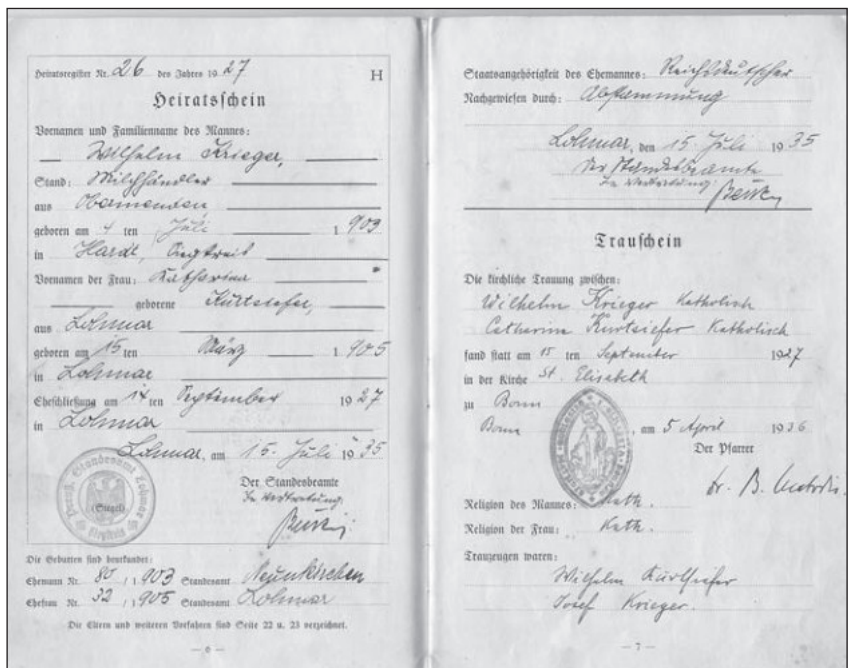 Heiratsregister Nr. 26 des Jahres 1927
H
Heiratsschein
Vornamen und Familienname des Mannes:
Wilhelm Krieger,
Stand: Milchhändler
aus Obermenden
geboren am 4 ten Juli 1903
in Hardt, Siegkreis
Vornamen der Frau: Katharina
geborene Kurtsiefer,
aus Lohmar
geboren am 15 ten März 1905
in Lohmar
Eheschließung am 14 ten September 1927
in Lohmar
Lohmar, am 15. Juli 1935
Der Standesbeamte
In Vertretung:
Preuß. Standesamt Lohmar
(Siegel)
Siegkreis
Die Geburten sind beurkundet:
Ehemann Nr. 80 / 1903 Standesamt Neunkirchen
Ehefrau Nr. 32 / 1905 Standesamt Lohmar
Die Eltern und weiteren Vorfahren sind Seite 22 u. 23 verzeichnet.
— 6 —
Staatsangehörigkeit des Ehemannes: Reichsdeutscher
Nachgewiesen durch: Abstammung
Lohmar, den 15. Juli 1935
Der Standesbeamte
In Vertretung:
Trauschein
Die kirchliche Trauung zwischen:
Wilhelm Krieger Katholisch
Catharina Kurtsiefer Katholisch
fand statt am 15 ten September 1927
in der Kirche St. Elisabeth
zu Bonn
Bonn, am 5 April 1936
Der Pfarrer
Dr. B.
Religion des Mannes: Kath.
Religion der Frau: Kath.
Trauzeugen waren:
Wilhelm Kurtsiefer
Josef Krieger.
— 7 —